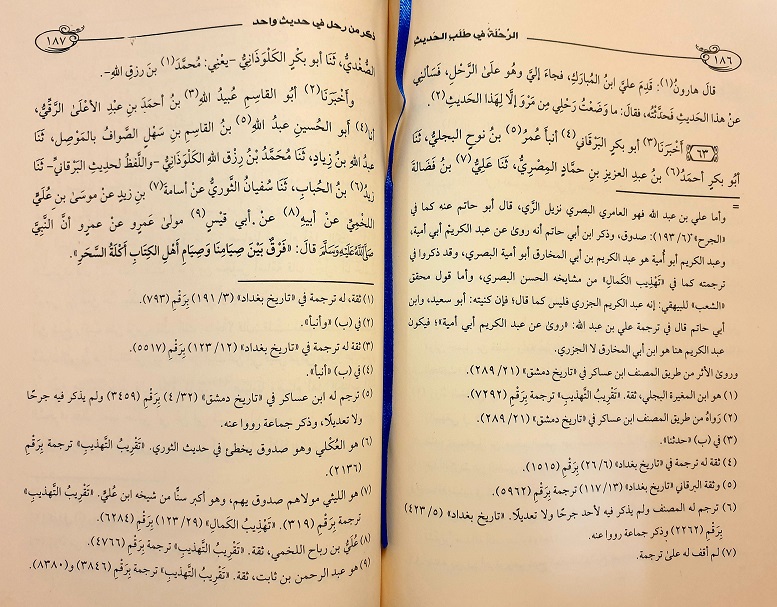 ١٨٦
الرِّحْلَةُ في طَلَبِ الحَدِيثِ
قال هارونُ(١): قَدِمَ عليَّ ابنُ المُبَارَكِ، فجاءَ إليَّ وهُو علَى الرَّحْلِ، فَسَأَلَنِي
عنْ هذا الحَدِيثِ فَحَدَّثْتُه، فقالَ: ما وَضَعْتُ رَحْلِي مِن مَرْوَ إلَّا لِهَذا الحَدِيثِ(٢).
٦٣ أَخْبَرَنَا(٣) أبو بَكرٍ البَرْقَانِي(٤) أنبأَ عُمرُ(٥) بنُ نُوحٍ البجليُّ، ثَنَا
أَبُو بكرٍ أحمَدُ(٦) بنُ عبدِ العزيزِ بنِ حمَّادٍ المِصْرِيُّ، ثَنَا عَلِيُّ(٧) بنُ فَضَالَةَ
=
وأما علي بن عبد الله فهو العامري البصري نزيل الرَّي، قال أبو حاتم عنه كما في
«الجرح» (٦/ ١٩٣): صدوق، وذكر ابن أبي حاتم أنه روىٰ عن عبد الكريمُ أبي أمية،
وعبد الكريم أبو أُمية هو عبد الكريم بن أبي المخارق أبو أمية البصري، وقد ذكروا في
ترجمته كما في «تَهْذِيب الكَمالِ» من مشايخه الحسن البصري، وأما قول محقق
«الشعب» للبيهقي: إنه عبد الكريم الجزري فليس كما قال؛ فإن كنيته: أبو سعيد، وابن
أبي حاتم قال في ترجمة علي بن عبد الله: «روىٰ عن عبد الكريم أبي أمية»؛ فيكون
عبد الكريم هنا هو ابن أبي المخارق لا الجزري.
وروىٰ الأثر من طريق المصنف ابن عساكر في «تاريخ دمشق» (٢١/ ٢٨٩).
(١) هو ابن المغيرة البجلي، ثقة. «تَقْرِيبُ التَّهذِيبِ» ترجمة بِرَقْمِ (٧٢٩٢).
(٢) رَوَاهُ من طريق المصنف ابن عساكر في «تاريخ دمشق» (٢١/ ٢٨٩).
(٣) في (ب) «حدثنا».
(٤) ثقة له ترجمة في «تاريخ بغداد» (٦/ ٢٦) بِرَقْمِ (١٥١٥).
(٥) وثقة البرقاني «تاريخ بغداد» (١٣/ ١١٧) بِرَقْمِ (٥٩٦٢).
(٦) ترجم له المصنف ولم يذكر فيه لأحد جرحًا ولا تعديلًا. «تاريخ بغداد» (٥/ ٤٢٣)
بِرَقْمِ (٢٢٦٢) وذكر جماعة رووا عنه.
(٧) لم أقف له علىٰ ترجمة.
ذكر من رحل في حديث واحد
١٨٧
الصُّغْديُّ، ثَنَا أبو بكْرٍ الكَلْوَذَانِيُّ -يعْنِي: مُحمَّدَ(١) بنَ رزقِ اللهِ-.
وأخْبَرَنَا(٢) أبُو القاسِمِ عُبيدُ اللهِ(٣) بنُ أحمَدَ بنِ عبْدِ الأعْلَى الرَّقِّيُّ،
أنا(٤) أبو الحُسينِ عبدُ اللهِ(٥) بنُ القاسِمِ بنِ سَهْلٍ الصَّوافُ بالمَوْصِلِ، ثَنَا
عبدُ اللهِ بنُ زِيادٍ، ثَنَا مُحَمَّدُ بْنُ رِزْقِ اللهِ الكَلْوَذَانِيُّ -واللَّفظُ لحدِيثِ البَرقَانِيِّ- ثَنَا
زيدُ(٦) بْنُ الحُبابِ، ثَنَا سُفيانُ الثَّوريُّ عنْ أسامةَ(٧) بنِ زيدٍ عنْ موسَىٰ بنِ عُلَيٍّ
اللخْمِيِّ عنْ أبيهِ(٨) عنْ أبي قيْسٍ(٩) مولىٰ عَمرِو عنْ عمرٍو أنَّ النَّبيَّ
صَلَّى اللَّهُ عَلَيْهِ وَسَلَّمَ قالَ: «فَرْقٌ بَيْنَ صِيَامِنَا وَصِيَامِ أَهْلِ الكِتَابِ أكْلَةُ السَّحَرِ».
(١) ثقة، له ترجمة في «تاريخ بغداد» (٣/ ١٩١) بِرَقْمِ (٧٩٣).
(٢) في (ب) «وأنبأ».
(٣) ثقة له ترجمة في «تاريخ بغداد» (١٢/ ١٢٣) بِرَقْمِ (٥٥١٧).
(٤) في (ب) «أنبأ».
(٥) ترجم له ابن عساكر في «تاريخ دمشق» (٣٢/ ٤) بِرَقْمِ (٣٤٥٩) ولم يذكر فيه جرحًا
ولا تعديلًا، وذكر جماعة رووا عنه.
(٦) هو العُكْلي وهو صدوق يخطئ في حديث الثوري. «تَقْرِيبُ التَّهذِيبِ» ترجمة بِرَقْمِ
(٢١٣٦).
(٧) هو الليثي مولاهم صدوق يهم، وهو أكبر سنًّا من شيخه ابن عُليٍّ. «تَقْرِيبُ التَّهذِيبِ»
ترجمة بِرَقْمِ (٣١٩). «تَهْذِيبُ الكَمَالِ» (٢٩/ ١٢٣) بِرَقْمِ (٦٢٨٤).
(٨) عُلَيُّ بن رباح اللخمي، ثقة. «تَقْرِيبُ التَّهذِيبِ» ترجمة بِرَقْمِ (٤٧٦٦).
(٩) هو عبد الرحمن بن ثابت، ثقة. «تَقْرِيبُ التَّهذِيبِ» ترجمة بِرَقْمِ (٣٨٤٦) و(٨٣٨٠).